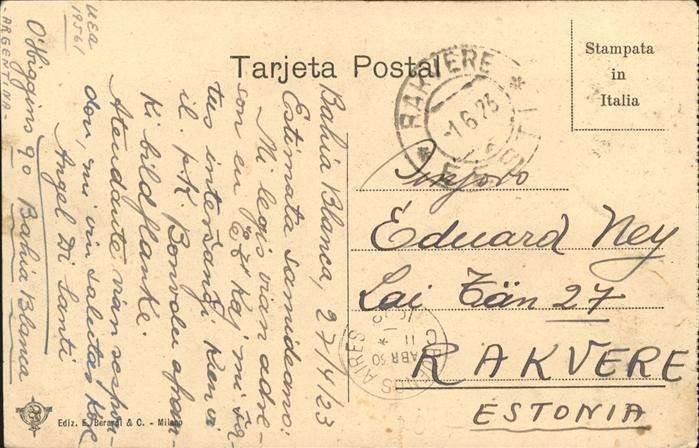 Tarjeta Postal
Stampata
in
Italia
RAKVERE
-1.6.25
EESTI
Sinjoro
Eduard Ney
Lai Tän 27
RAKVERE
ESTONIA
BUENOS AIRES
ABR 30
11
Bahía Blanca, 27/4/23
Estimata samideano:
Mi legis vian adre-
son en EĔ kaj mi ŝa-
tus interŝanĝi kun vi
il. pk. Bonvolu afran-
ki bildflanke.
Atendante vian respon-
don, mi vin salutas kore
Angel Di Santi
O'Higgins 90 Bahía Blanca
ARGENTINA.
UEA
19561
Ediz. E. Berardi & C. - Milano